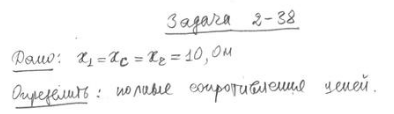 Задача 2-38
Дано: x₁ = x_C = x₂ = 10, Ом
Определить: полные сопротивления цепей.